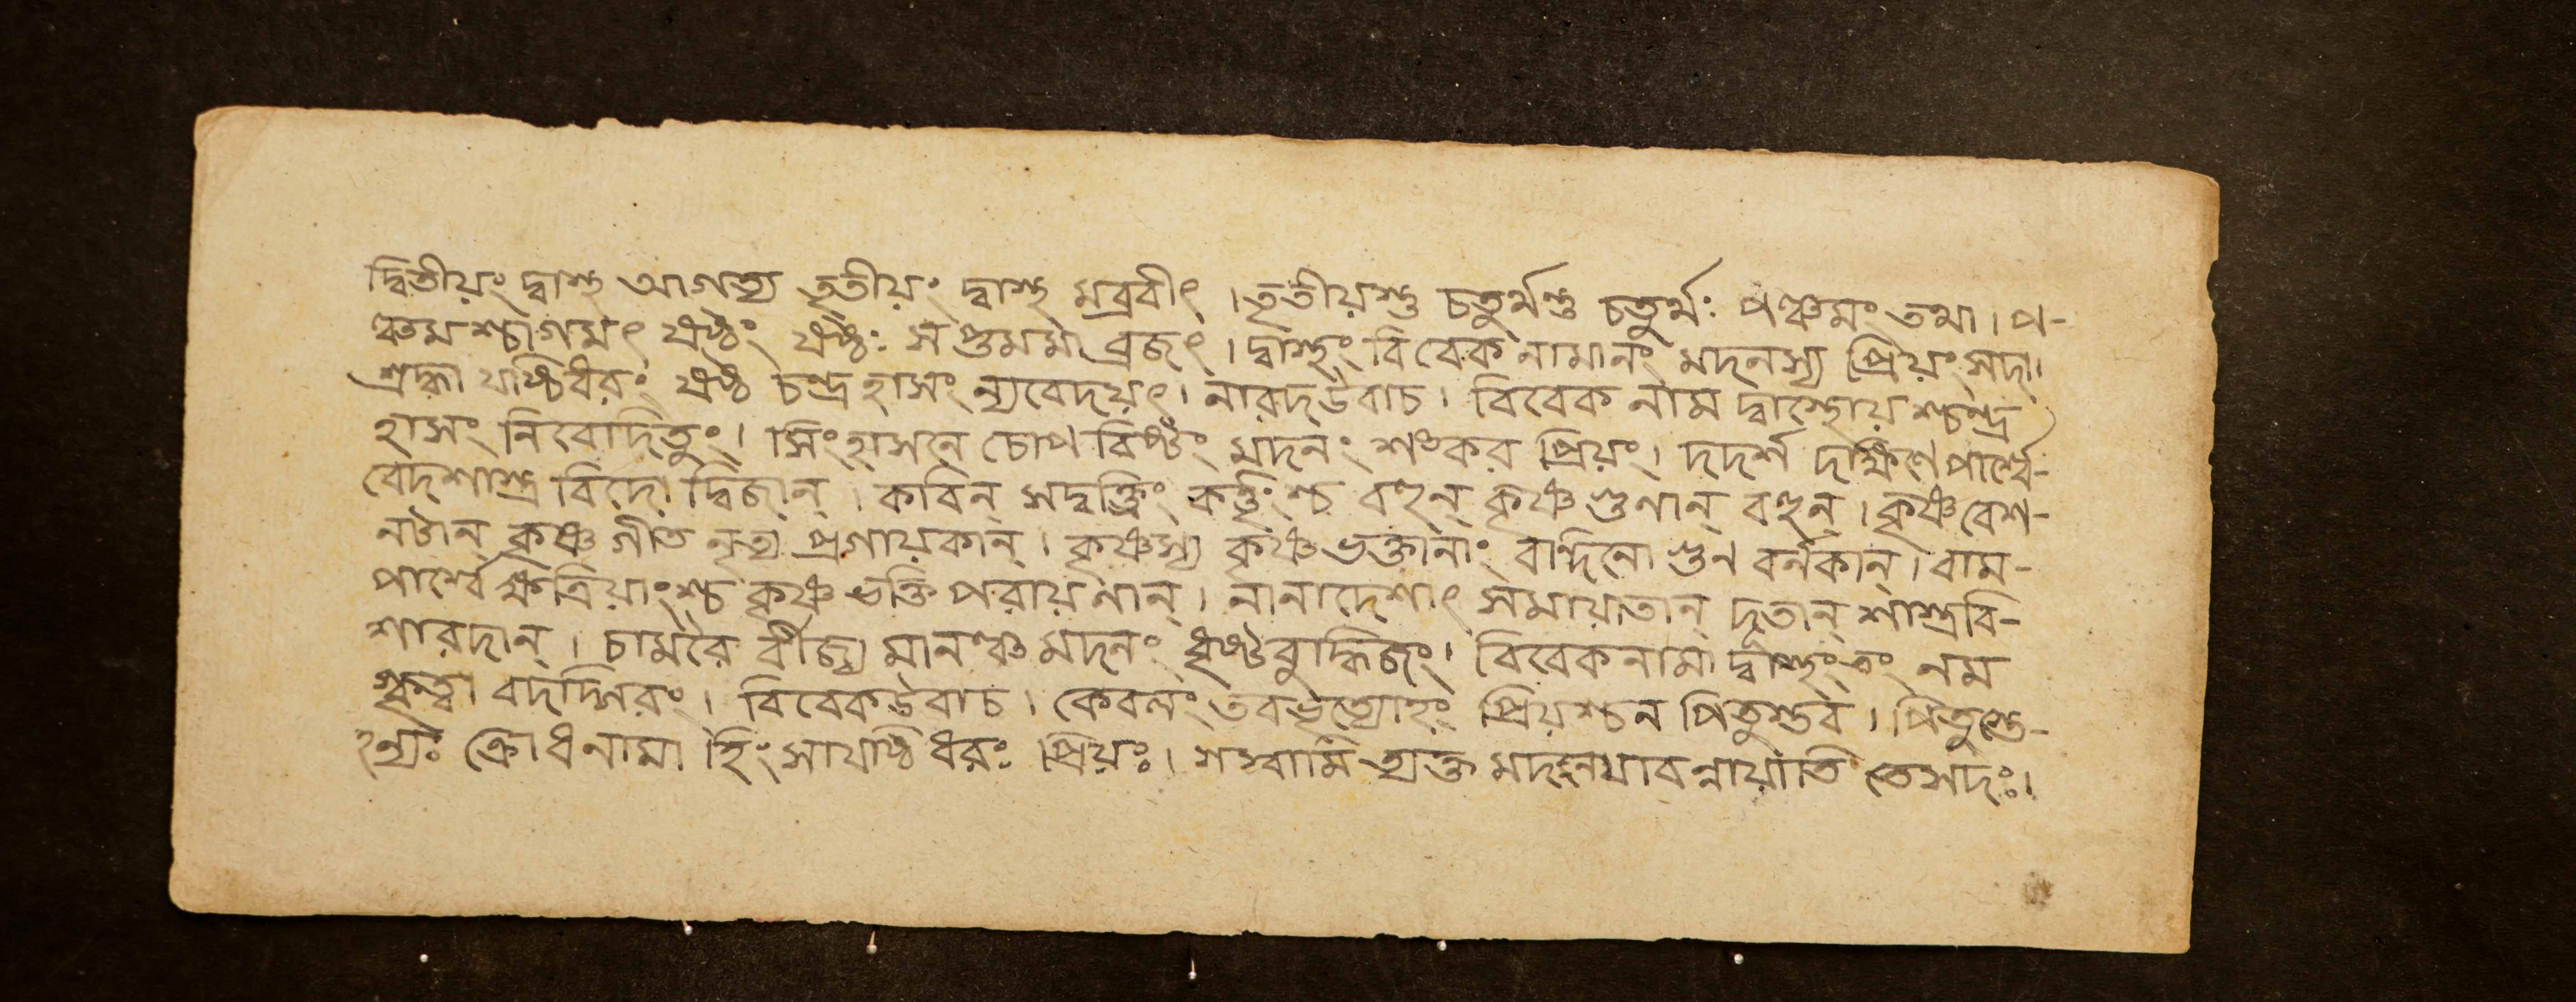 দ্বিতীয়ং দ্বাস্থ আগত্য তৃতীয়ং দ্বাস্থ মব্রবীৎ। তৃতীয়স্তু চতুর্থন্তু চতুর্থঃ পঞ্চমং তথা। প-
ঞ্চমশ্চাগমৎ ষষ্ঠং ষষ্ঠঃ সপ্তমমা ব্রজৎ। দ্বাস্থং বিবেক নামানং মদনস্য প্রিয়ং সদা।
শ্রদ্ধা যষ্টিধরং ষষ্ঠ চন্দ্র হাসং ন্যবেদয়ৎ। নারদউবাচ। বিবেক নাম দ্বাস্থোয়শ্চন্দ্র
হাসং নিবেদিতুং। সিংহাসনে চোপ বিষ্টং মদনং শংকর প্রিয়ং। দদর্শ দক্ষিণে পার্শ্বে-
বেদশাস্ত্র বিদো দ্বিজান্। কবিন্ সদ্বক্তৃিং কর্ত্তৃংশ্চ বহুন্ কৃষ্ণ গুনান্ বহুন্। কৃষ্ণবেশ-
নটান্ কৃষ্ণ গীত নৃত্য প্রগায়কান্। কৃষ্ণস্য কৃষ্ণ ভক্তানাং বান্দিনো গুন বর্নকান্। বাম-
পার্শ্বে ক্ষত্রিয়াংশ্চ কৃষ্ণ ভক্তি পরায়নান্। নানাদেশাৎ সমায়াতান্ দূতান্ শাস্ত্রবি-
শারদান্। চামরৈ র্বীজ্য মানঞ্চ মদনং ধৃষ্টবুদ্ধিজং। বিবেকনামা দ্বাস্থং তং নম
স্কৃত্বা বদদ্গিরং। বিবেকউবাচ। কেবলং তবভৃত্যোহং প্রিয়শ্চন পিতুস্তব। পিতুস্তে-
হন্যঃ ক্রোধনামা হিংসাযষ্টি ধরঃ প্রিয়ঃ। ত্যক্ত মদনেযাবন্নায়াতি তেসদঃ।